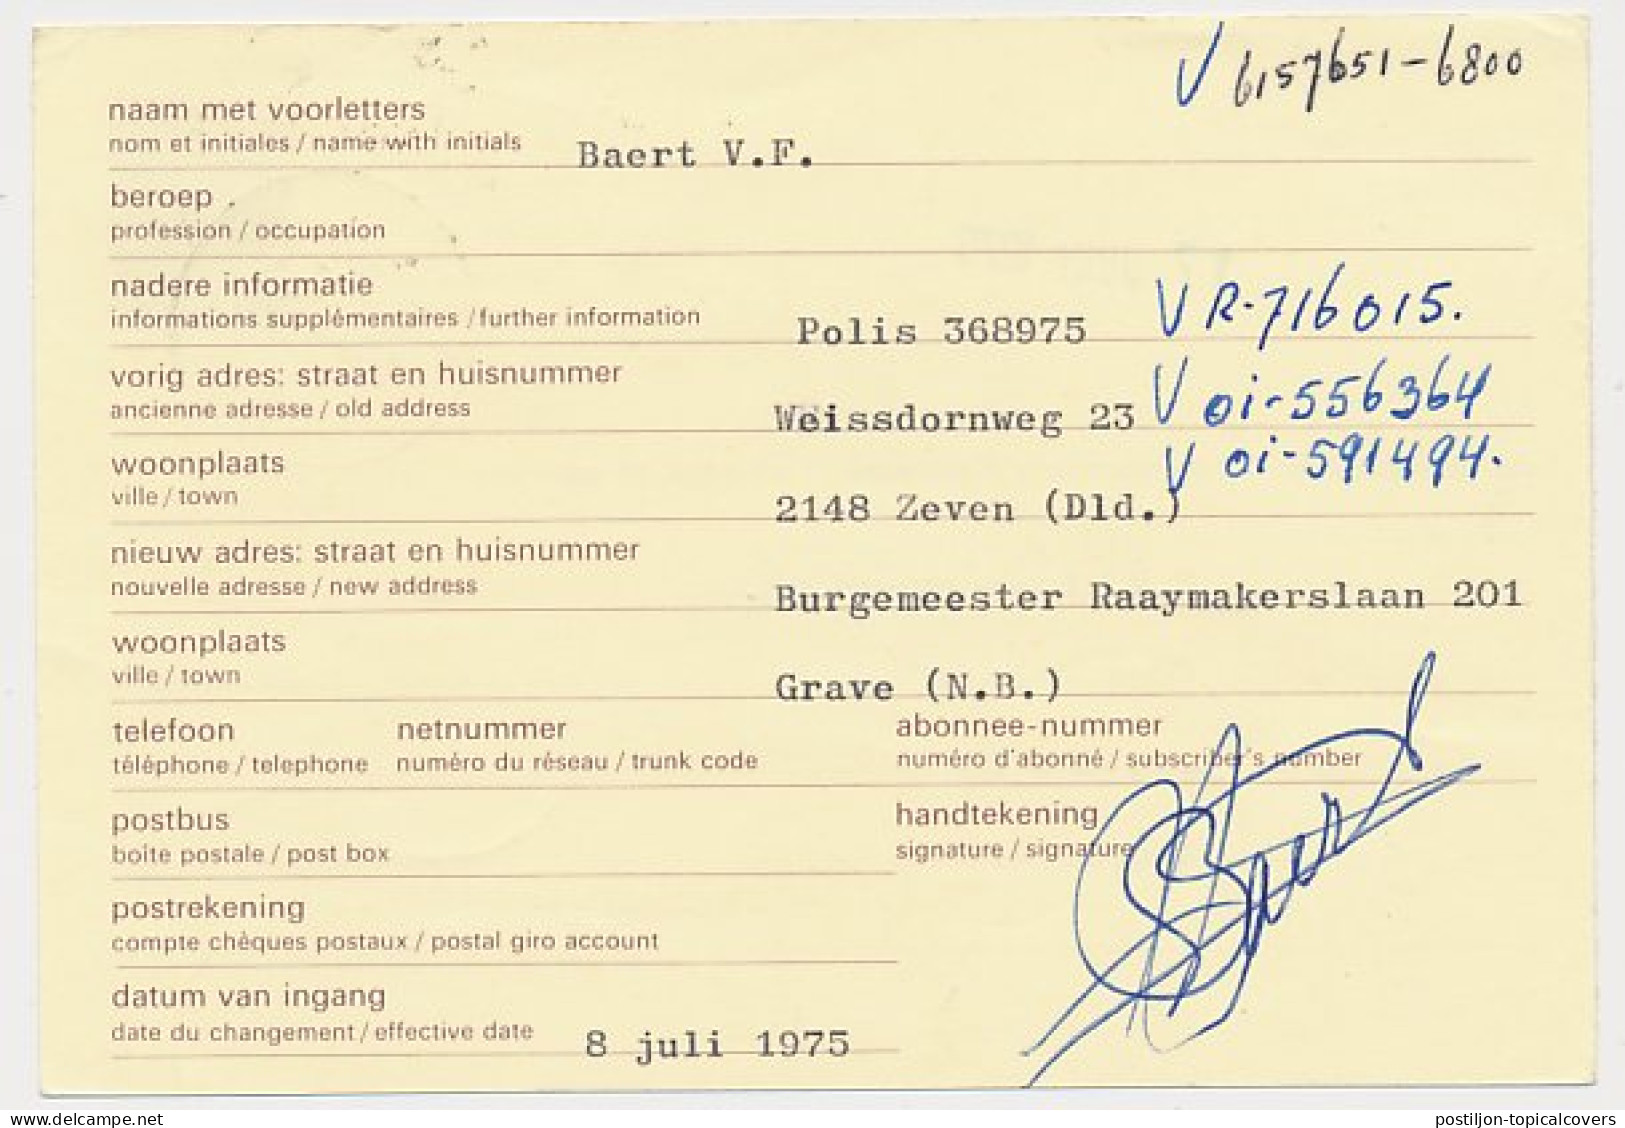 V 6157651-6800
naam met voorletters
nom et initiales / name with initials
Baert V.F.
beroep .
profession / occupation
nadere informatie
informations supplémentaires / further information
Polis 368975
V R-716015.
vorig adres: straat en huisnummer
ancienne adresse / old address
Weissdornweg 23
V oi-556364
woonplaats
ville / town
2148 Zeven (Dld.)
V oi-591494.
nieuw adres: straat en huisnummer
nouvelle adresse / new address
Burgemeester Raaymakerslaan 201
woonplaats
ville / town
Grave (N.B.)
telefoon netnummer abonnee-nummer
téléphone / telephone numéro du réseau / trunk code numéro d'abonné / subscriber's number
postbus
boîte postale / post box
handtekening
signature / signature
postrekening
compte chèques postaux / postal giro account
datum van ingang
date du changement / effective date
8 juli 1975
www.delcampe.net
postiljon-topicalcovers